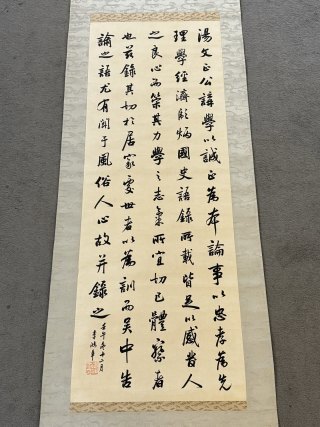 湯文正公講學以誠正為本論事以忠孝為先
理學經濟彪炳國史語錄所載皆足以感發人
之良心而策其力學之志氣所宜切己體察者
也茲錄其切於居家處世者以為訓而吳中告
諭之語尤有關于風俗人心故并錄之
壬午年十二月
李鴻章